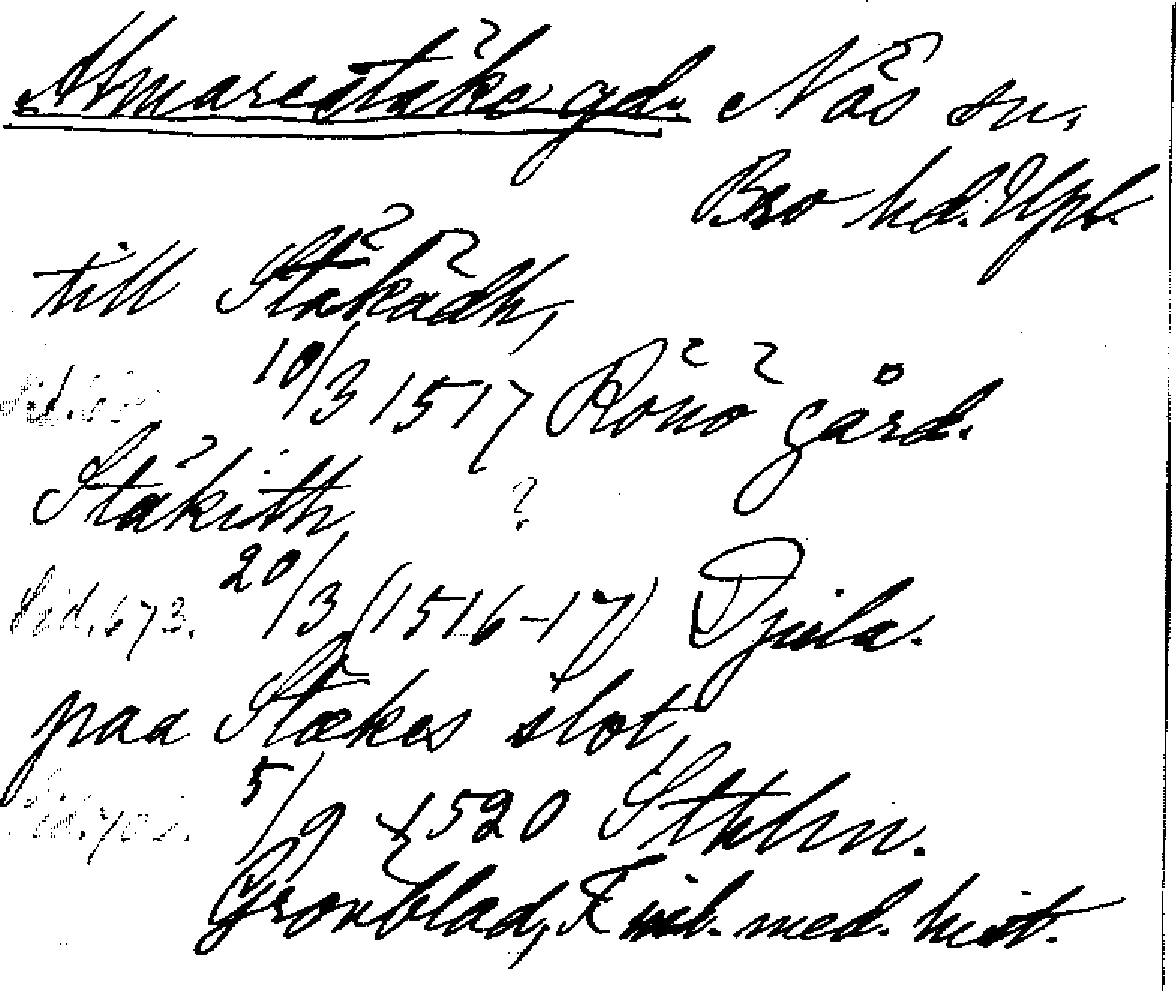 Almarestäke gd. Näs sn,
Bro hd. Upl.
till Stäkädh,
10/3 1517 Rönö gård.
Stäkith ?
Sid. 673. 20/3 (1516-17) Djula.
paa Stækes slot,
5/9 1520 Sthlm.
Grönblad, F med. hist.